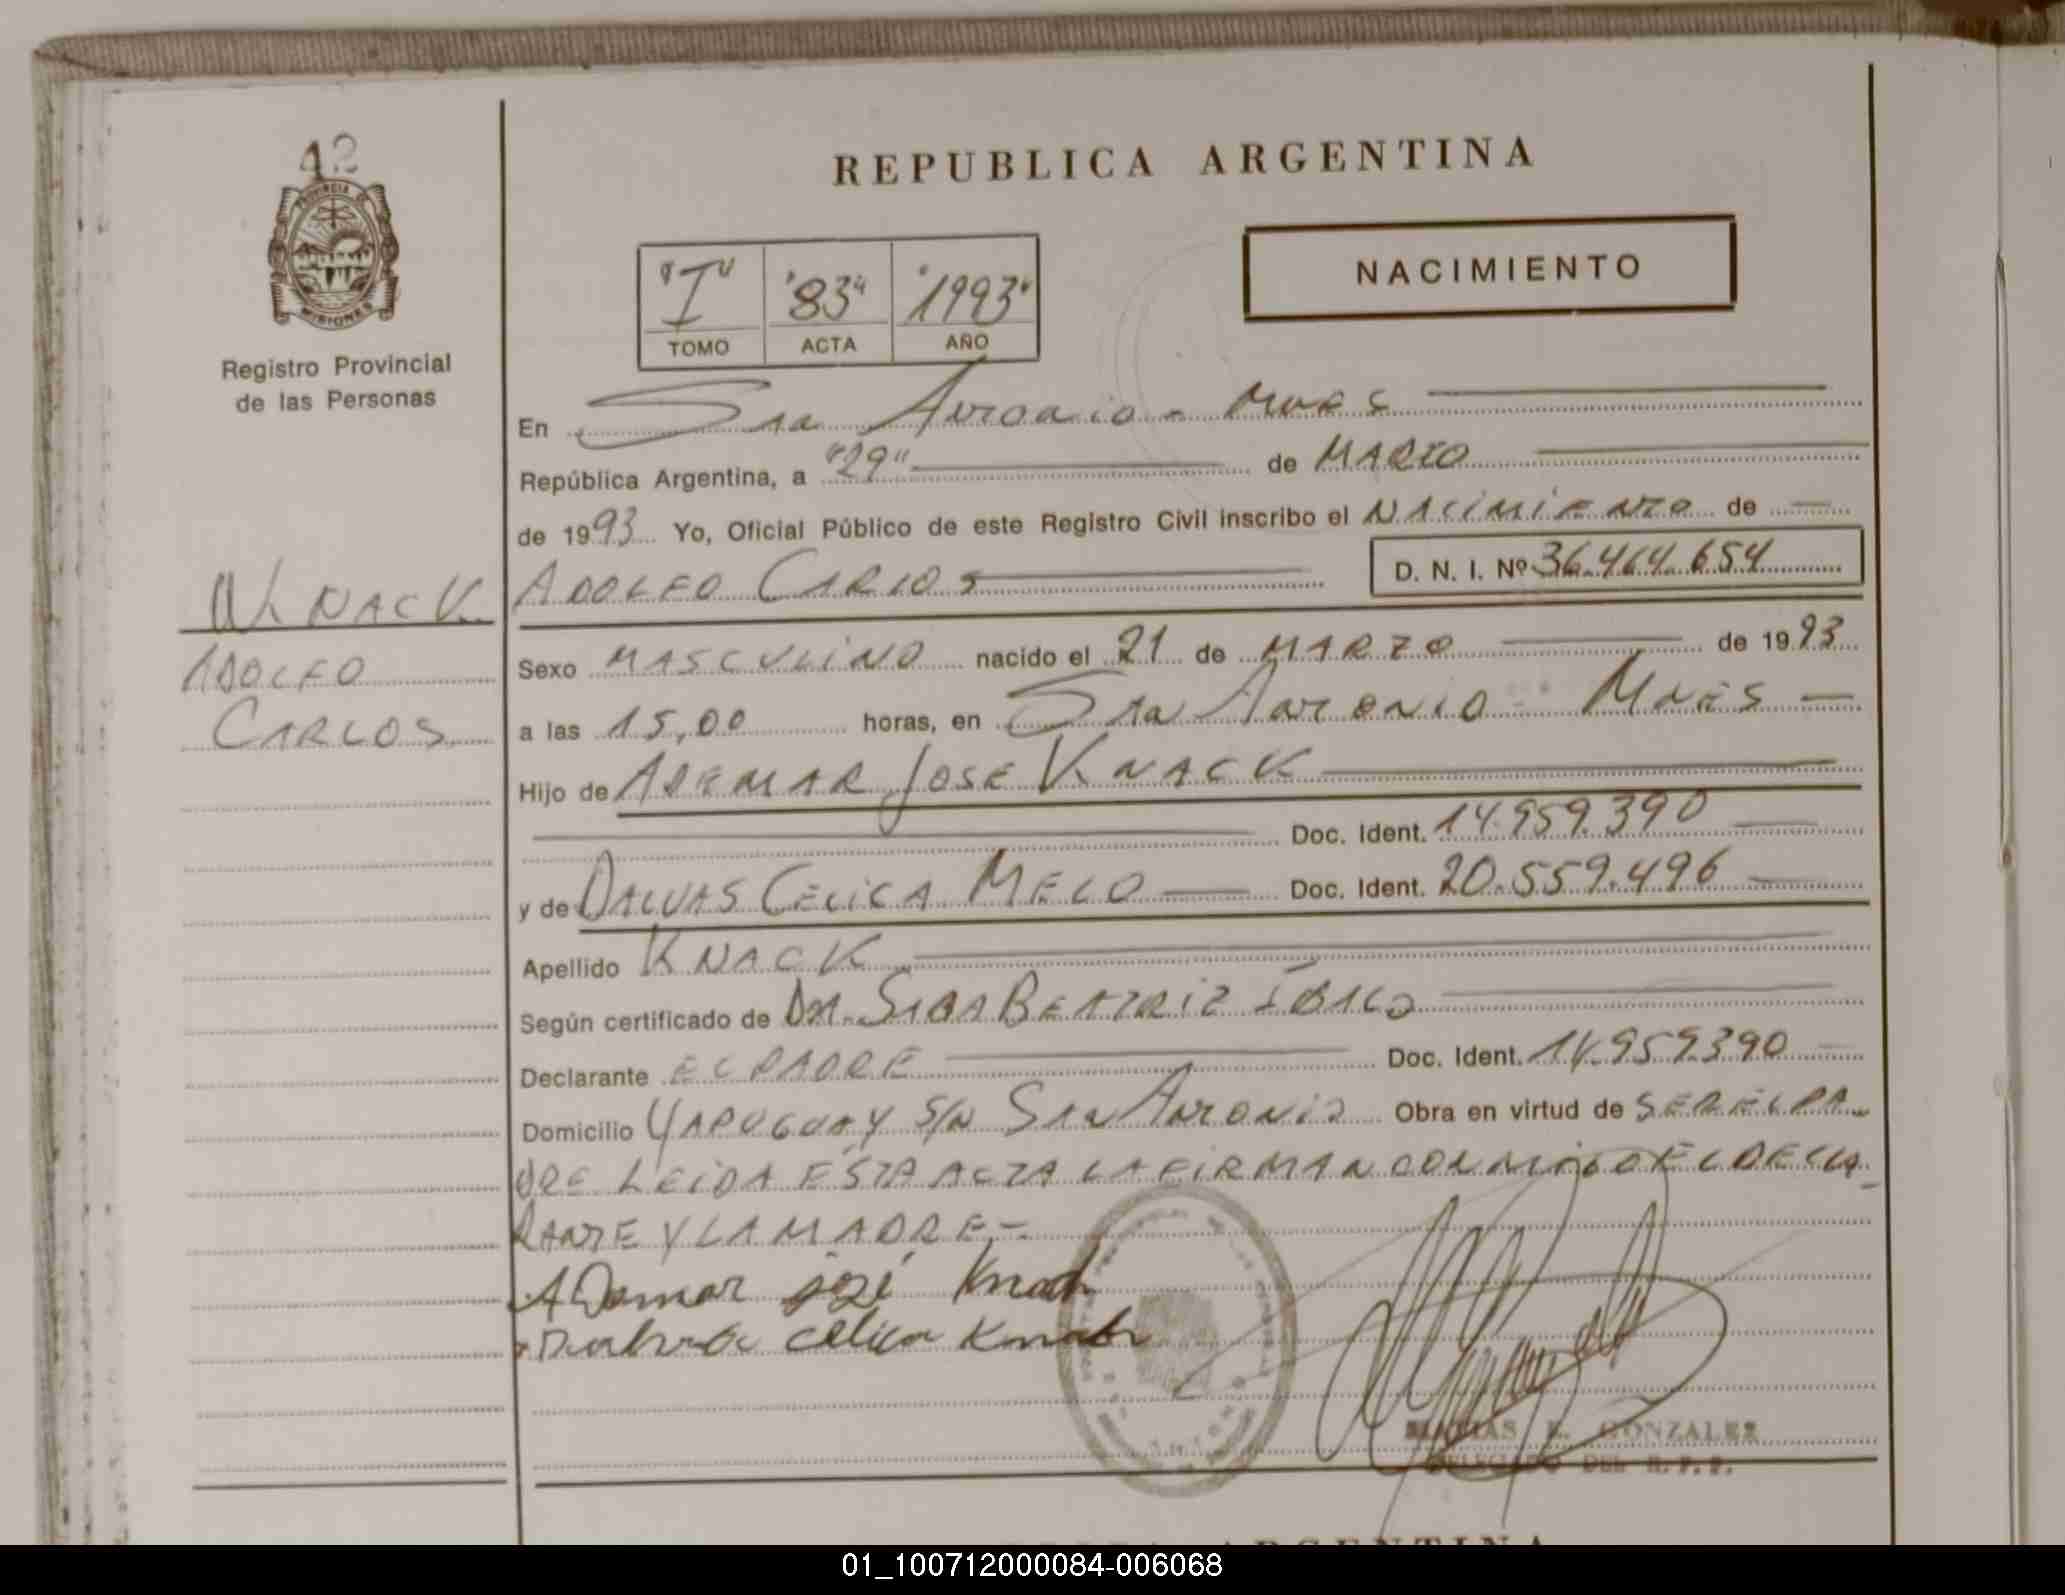 42
PROVINCIA DE
MISIONES
Registro Provincial
de las Personas
KNACK
ADOLFO
CARLOS
REPUBLICA ARGENTINA
NACIMIENTO
"I" "83" "1993"
TOMO ACTA AÑO
En San Antonio - Mnes
República Argentina, a "29" de MARZO
de 1993 Yo, Oficial Público de este Registro Civil inscribo el NACIMIENTO de
ADOLFO CARLOS D. N. I. Nº 36.464.654
Sexo MASCULINO nacido el 21 de MARZO de 1993
a las 15,00 horas, en San Antonio - Mnes
Hijo de ADEMAR JOSE KNACK
Doc. Ident. 14.959.390
y de DALVAS CELICA MELO Doc. Ident. 20.559.496
Apellido KNACK
Según certificado de Dra. BEATRIZ
Declarante EL PADRE Doc. Ident. 14.959.390
Domicilio YAPUGUAY S/N SAN ANTONIO Obra en virtud de SER EL PA
DRE LEIDA ESTA ACTA LA FIRMAN CONMIGO EL DECLA-
RANTE Y LA MADRE.-
Ademar josé Knack
celica Knack
MATIAS E. GONZALEZ
DELEGADO DEL R. P. P.
ARGENTINA
01_100712000084-006068